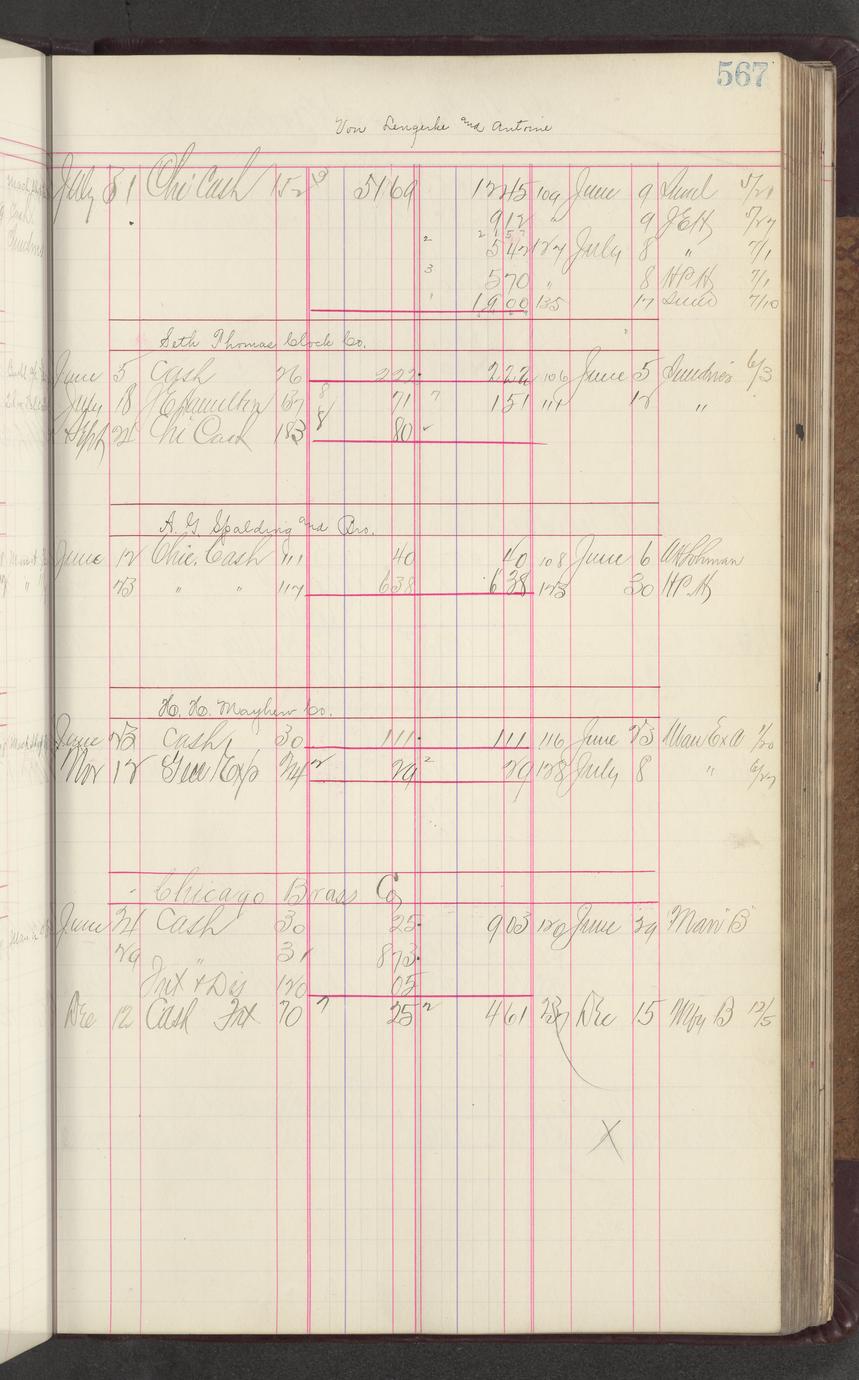 567
Von Lengerke and Antoine
July 31 Chi Cash 152 51 69 12 45 109 June 9 Sund 5/21
9 12 " 9 JEH 5/27
2 21 57
5 42 127 July 8 " 7/1
3 5 70 " 8 HPH 7/1
1 19 00 135 17 Sund 7/10
Seth Thomas Clock Co.
June 5 Cash 26 2 22 2 22 106 June 5 Sundries 6/3
July 18 J E Hamilton 137 8 71 7 1 51 111 12 "
Sept 21 Chi Cash 183 8 80
A. G. Spalding and Bro.
June 12 Chic. Cash 111 40 40 108 June 6 AH Lohman
23 " " 117 6 38 6 38 125 30 HPH
H. H. Mayhew Co.
June 23 Cash 30 1 11 1 11 116 June 23 Man Ex A 1/20
Nov 12 Gen Exp 24 2 29 2 29 128 July 8 " 6/27
Chicago Brass Co
June 24 Cash 30 25 9 03 120 June 29 Man B
29 " 31 8 73
Frt & Dis 120 05
Dec 12 Cash Frt 70 7 25 2 4 61 237 Dec 15 Mfg B 12/5
X